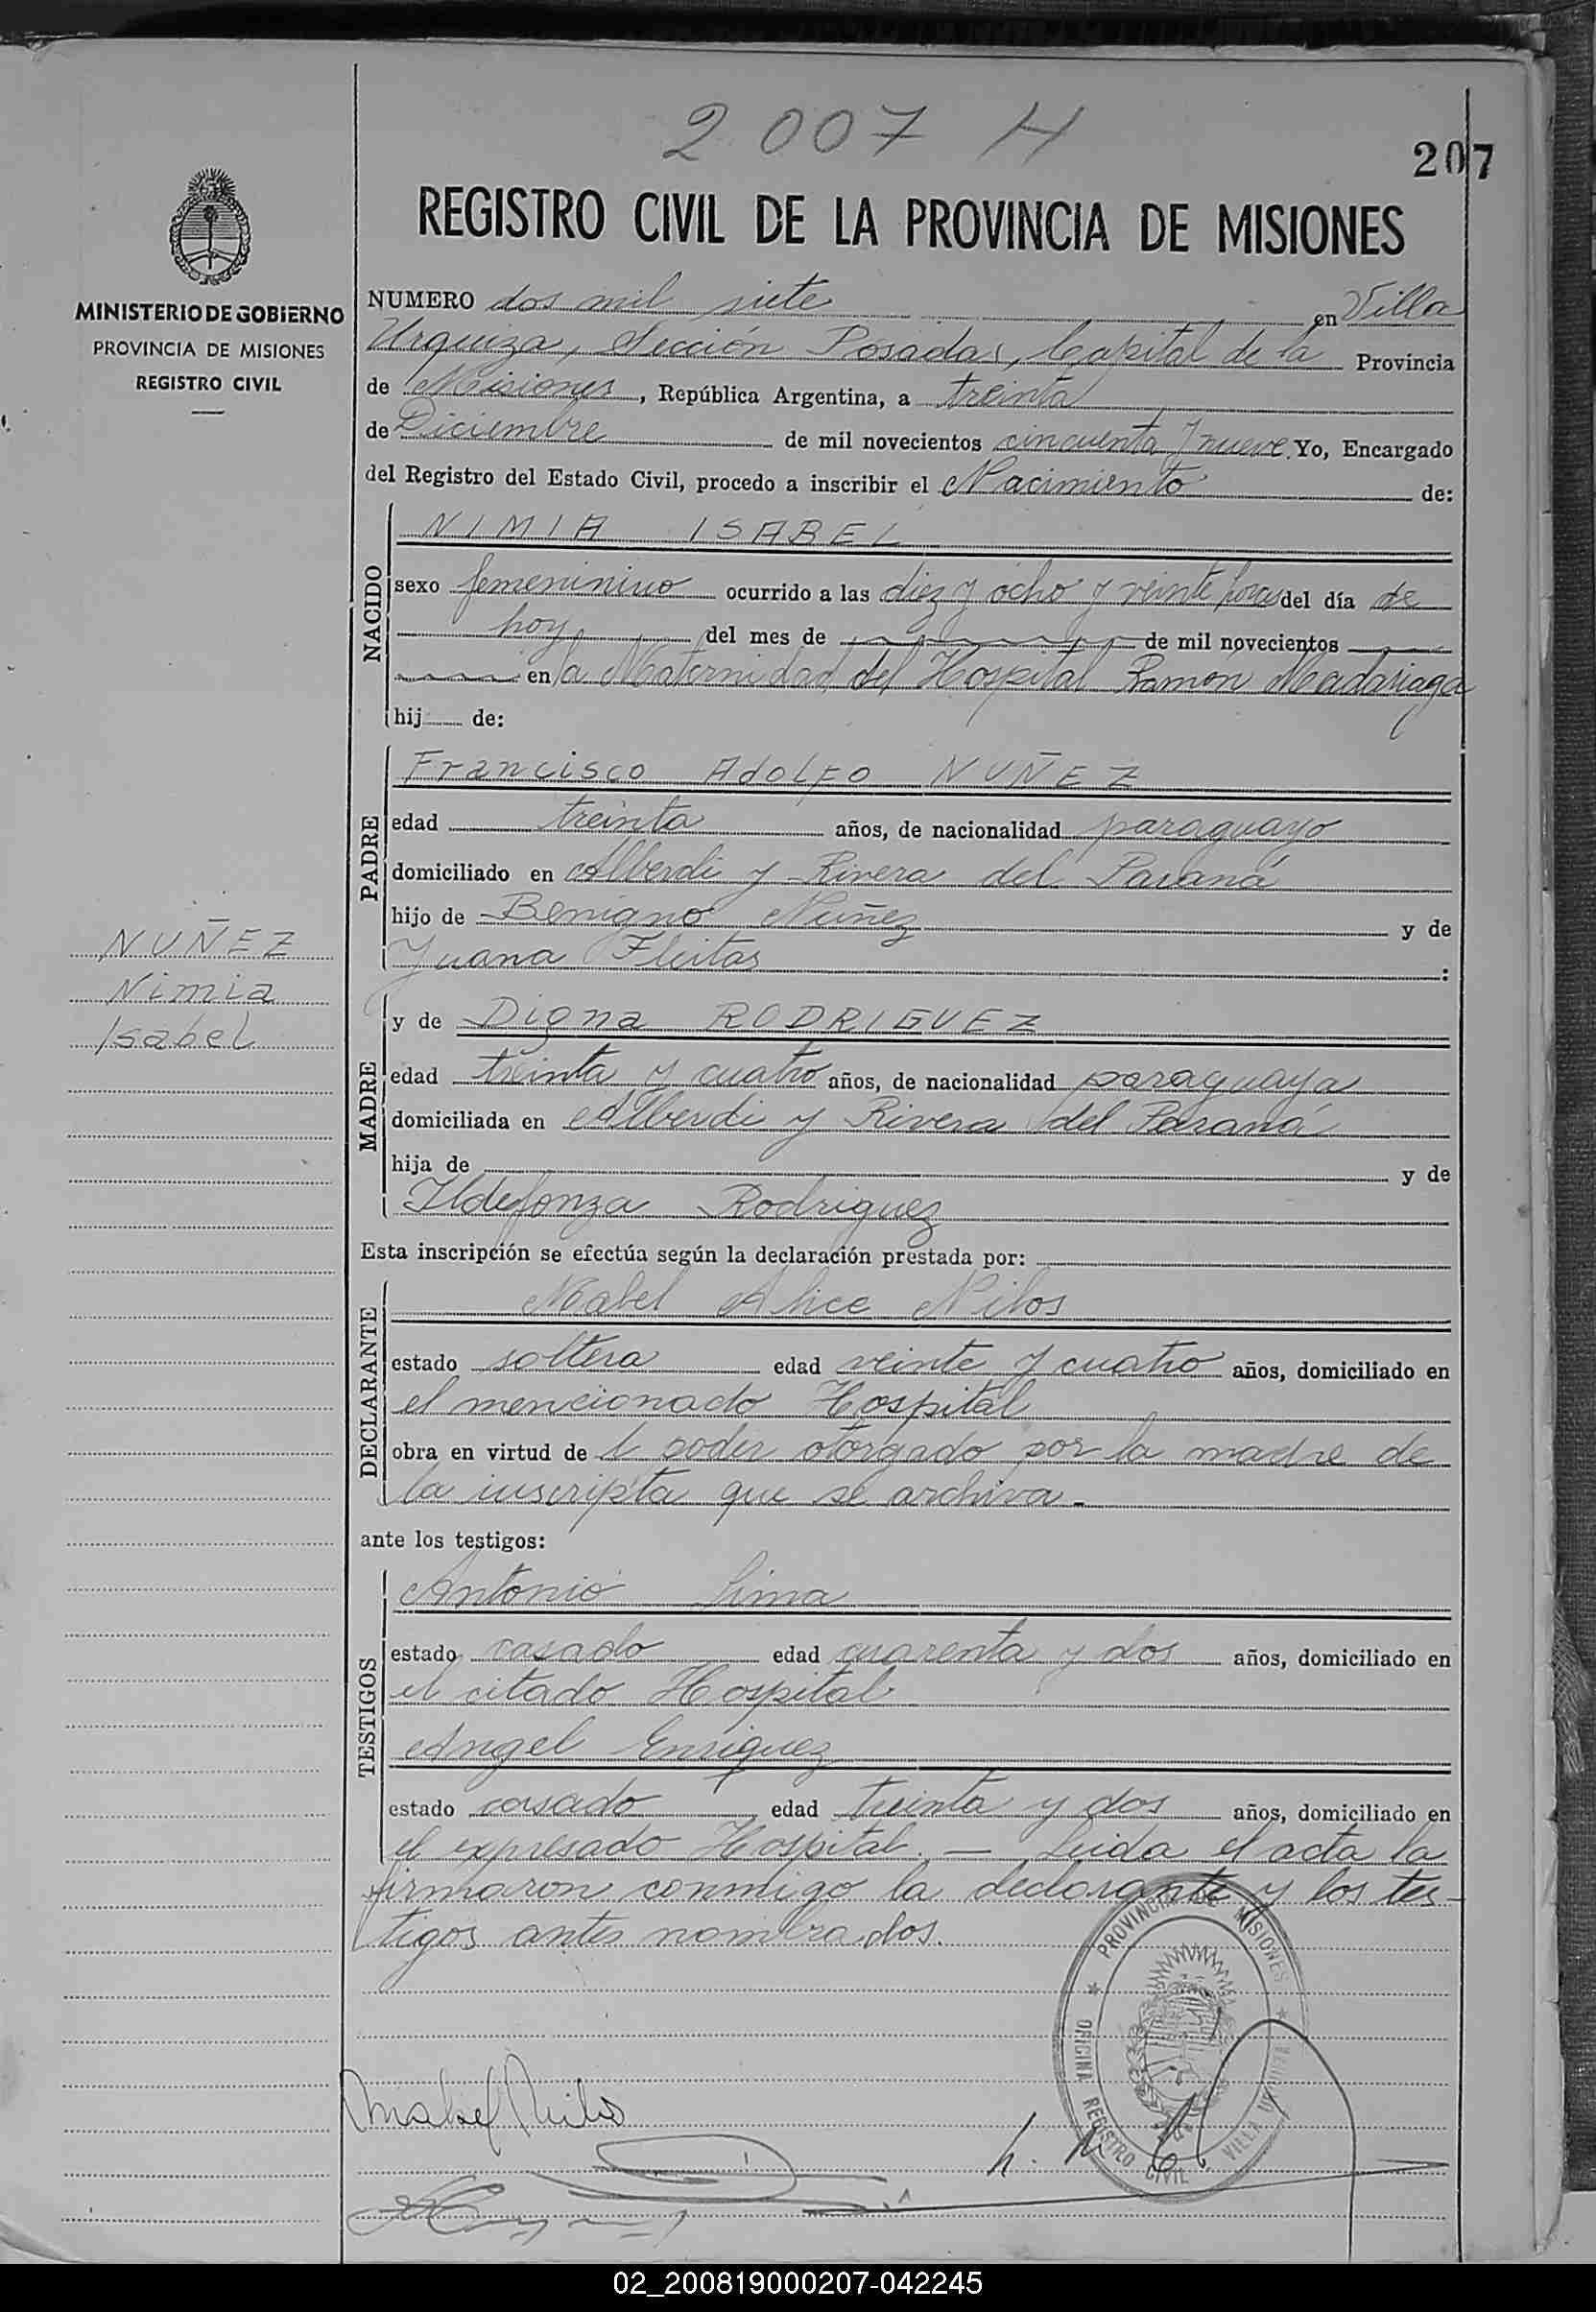 2007 H
207
REGISTRO CIVIL DE LA PROVINCIA DE MISIONES
MINISTERIO DE GOBIERNO
PROVINCIA DE MISIONES
REGISTRO CIVIL
NUMERO dos mil siete en Villa
Urquiza, Sección Posadas, Capital de la Provincia
de Misiones, República Argentina, a treinta
de Diciembre de mil novecientos cincuenta y nueve. Yo, Encargado
del Registro del Estado Civil, procedo a inscribir el Nacimiento de:
NACIDO
NIMIA ISABEL
sexo femeninino ocurrido a las diez y ocho y veinte horas del día de
hoy del mes de de mil novecientos
en la Maternidad del Hospital Ramón Madariaga
hij de:
PADRE
Francisco Adolfo NUÑEZ
edad treinta años, de nacionalidad paraguayo
domiciliado en Alberdi y Rivera del Paraná
hijo de Benigno Nuñez y de
Juana Fleitas :
NUÑEZ
Nimia
Isabel
MADRE
y de Digna RODRIGUEZ
edad treinta y cuatro años, de nacionalidad paraguaya
domiciliada en Alberdi y Rivera del Paraná
hija de y de
Ildefonza Rodriguez
Esta inscripción se efectúa según la declaración prestada por:
DECLARANTE
Mabel Alice Nilos
estado soltera edad veinte y cuatro años, domiciliado en
el mencionado Hospital
obra en virtud de l poder otorgado por la madre de
la inscripta que se archiva.-
ante los testigos:
TESTIGOS
Antonio Lima
estado casado edad cuarenta y dos años, domiciliado en
el citado Hospital
Angel Enriquez
estado casado edad treinta y dos años, domiciliado en
el expresado Hospital. — Leida el acta la
firmaron conmigo la declarante y los tes-
tigos antes nombrados.
PROVINCIA DE MISIONES
OFICINA REGISTRO CIVIL VILLA URQUIZA
Mabel Nilos
02_200819000207-042245